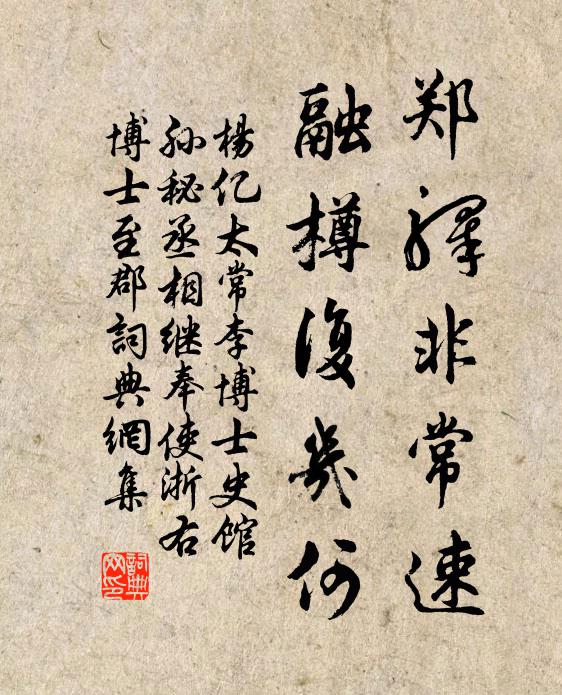 郑驛非常速
融樽復幾何
楊亿太常李博士史馆
孙秘丞相继奉使浙右
博士至郡詞典網集
詞典
网印